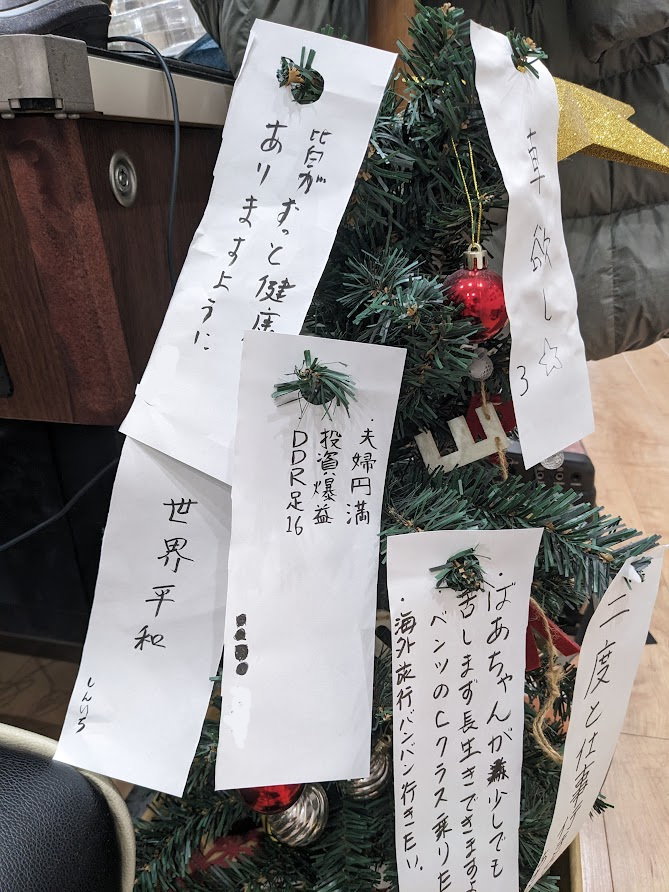 皆が
ずっと健康
ありますように
車欲し☆
3
・夫婦円満
投資爆益
DDR足16
世界平和
しんいち
・ばあちゃんが少しでも
苦しまず長生きできます
ベンツのCクラス乗りた
・海外旅行バンバン行きたい。
二度と仕事